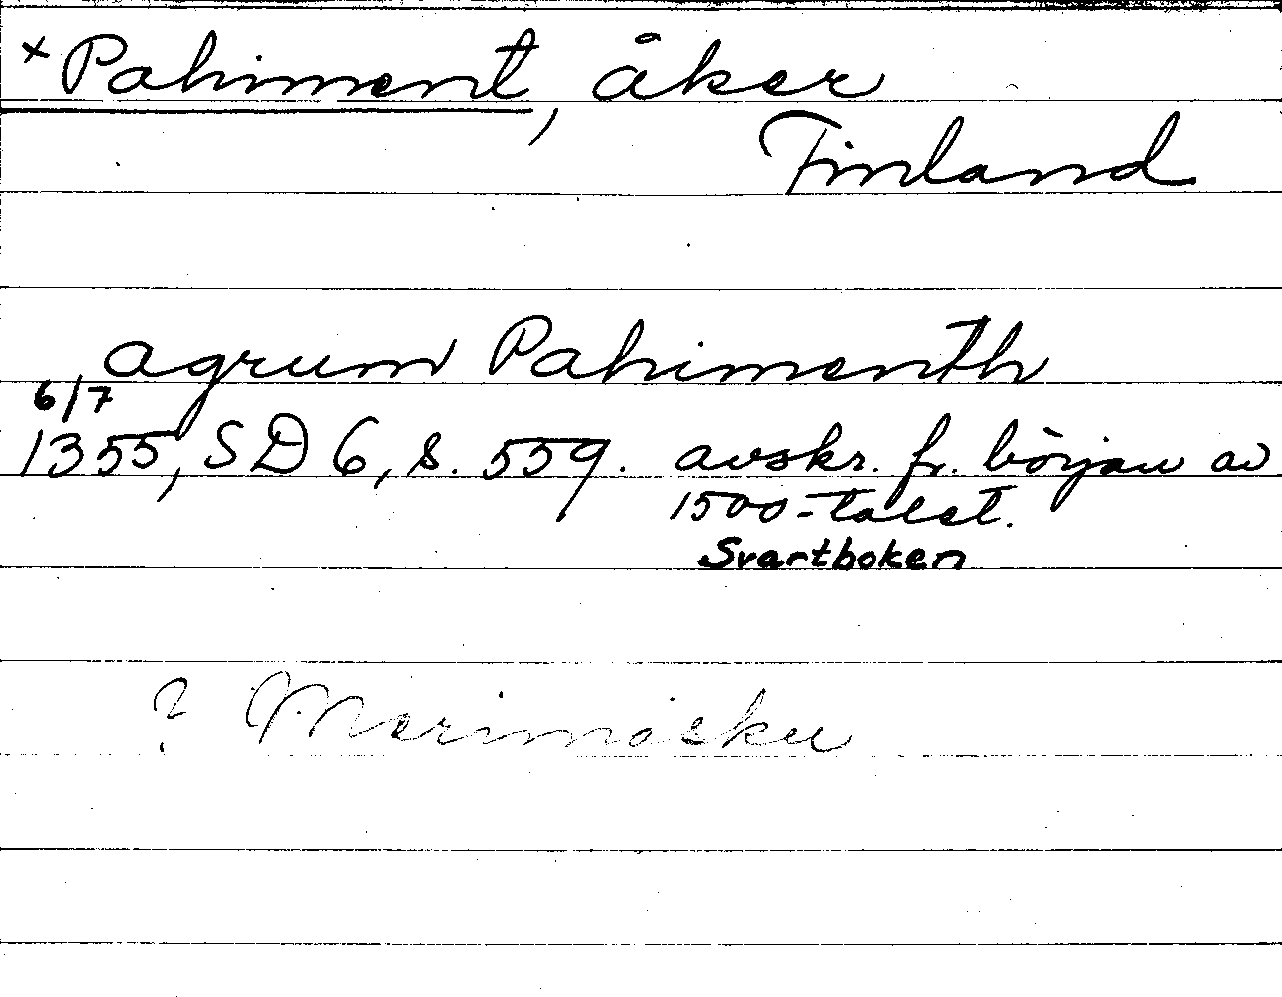 x Pahiment, åker
Finland
agrum Pahimenth
6/7
1355, SD 6, s. 559. avskr. fr. början av
1500-talet.
Svartboken
? Merimasku